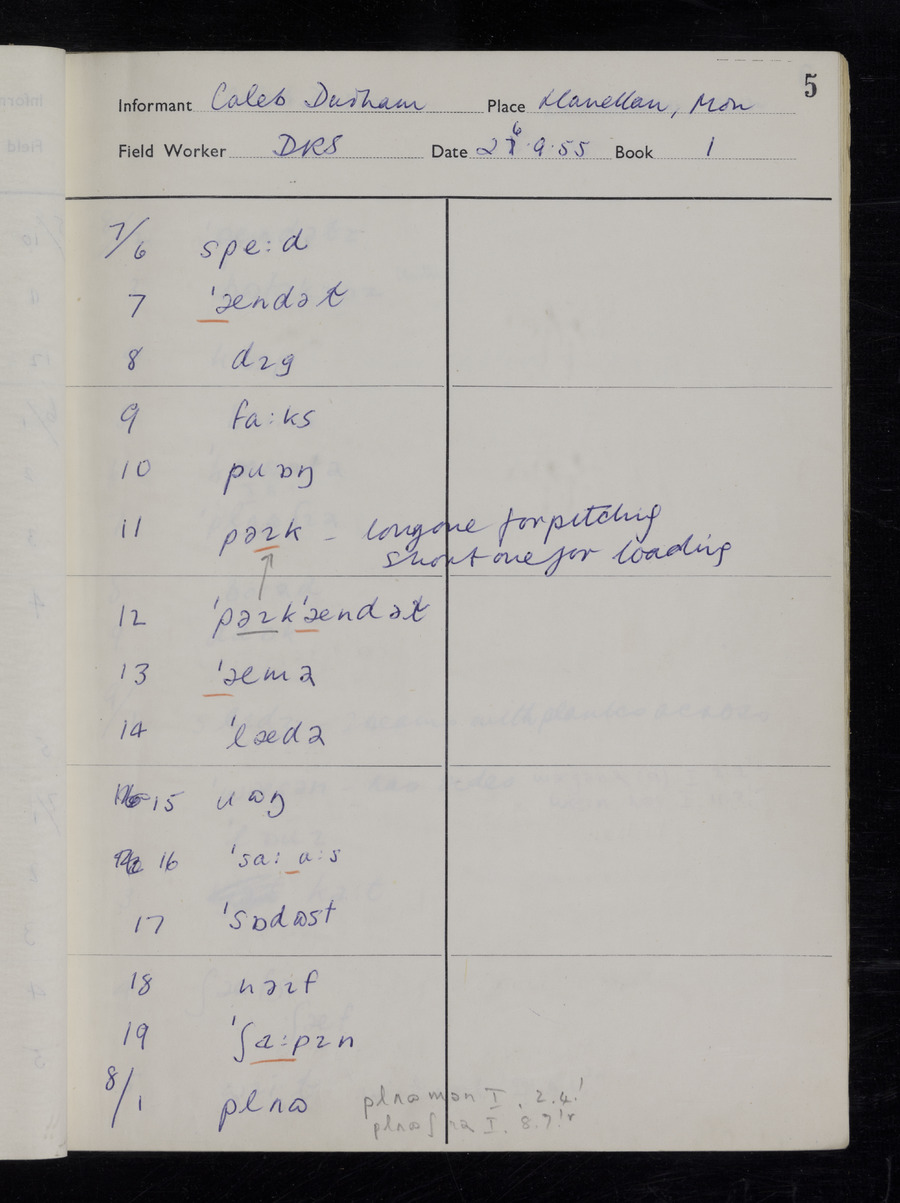 5
Informant Caleb Durham Place Llanellan, Mon
Field Worker DRS Date 26.9.55 Book 1
7/6 spe:d
7 'ændət
8 dɪg
9 fa:ks
10 pɷŋ
11 pəɪk - long one for pitching
short one for loading
12 'pəɪk'ændət
13 'æmə
14 'lædə
15
16 'sa: a:s
17 'sɒdɷst
18 nəɪf
19 'ʃa:pɪn
8/1 plaɷ
I. 2.4
I. 8.7